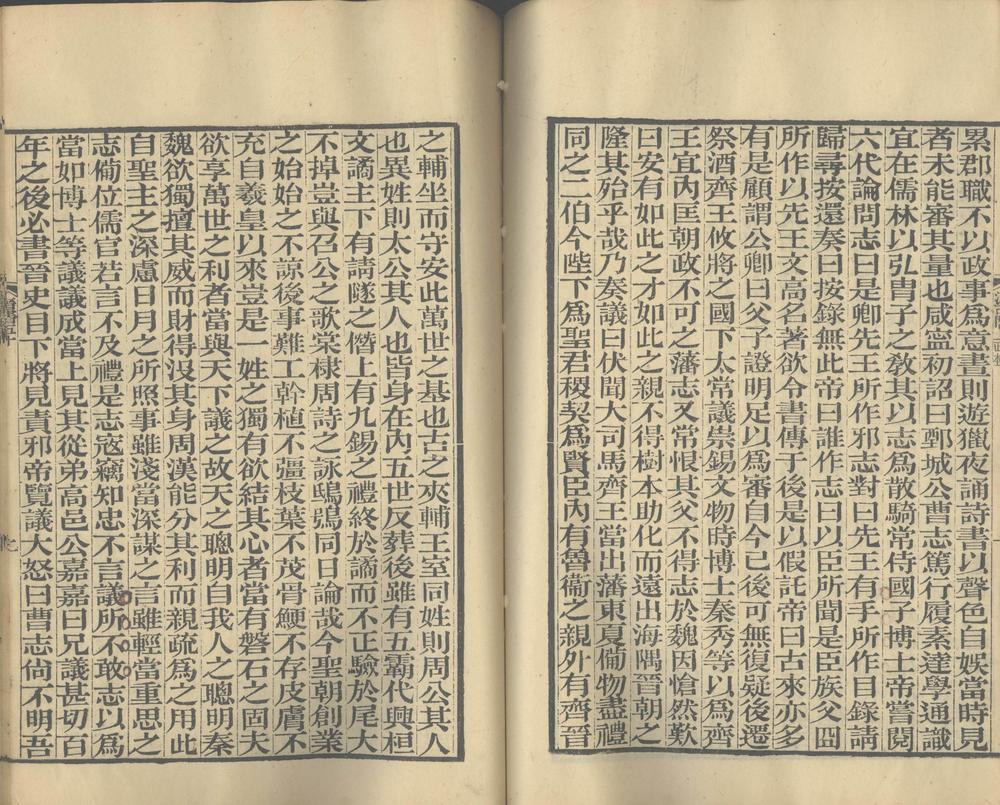 累郡職不以政事爲意晝則遊獵夜誦詩書以聲色自娛當時見
者未能審其量也咸寧初詔曰鄄城公曹志篤行履素達學通識
宜在儒林以弘胄子之教其以志爲散騎常侍國子博士帝嘗閱
六代論問志曰是卿先王所作邪志對曰先王有手所作目錄請
歸尋按還奏曰按錄無此帝曰誰作志曰以臣所聞是臣族父冏
所作以先王文高名著欲令書傳于後是以假託帝曰古來亦多
有是顧謂公卿曰父子證明足以爲審自今已後可無復疑後遷
祭酒齊王攸將之國下太常議崇錫文物時博士秦秀等以爲齊
王宜內匡朝政不可之藩志又常恨其父不得志於魏因愴然歎
曰安有如此之才如此之親不得樹本助化而遠出海隅晉朝之
隆其殆乎哉乃奏議曰伏聞大司馬齊王當出藩東夏備物盡禮
同之二伯今陛下爲聖君稷契爲賢臣內有魯衞之親外有齊晉
之輔坐而守安此萬世之基也古之夾輔王室同姓則周公其人
也異姓則太公其人也皆身在內五世反葬後雖有五霸代興桓
文譎主下有請隧之僭上有九錫之禮終於譎而不正驗於尾大
不掉豈與召公之歌棠棣周詩之詠鴟鴞同日論哉今聖朝創業
之始始之不諒後事難工幹植不彊枝葉不茂骨鯁不存皮膚不
充自羲皇以來豈是一姓之獨有欲結其心者當有磐石之固夫
欲享萬世之利者當與天下議之故天之聰明自我人之聰明秦
魏欲獨擅其威而財得沒其身周漢能分其利而親疏爲之用此
自聖主之深慮日月之所照事雖淺當深謀之言雖輕當重思之
志備位儒官若言不及禮是志寇竊知忠不言議所不敢志以爲
當如博士等議議成當上見其從弟高邑公嘉嘉曰兄議甚切百
年之後必書晉史目下將見責邪帝覽議大怒曰曹志尙不明吾